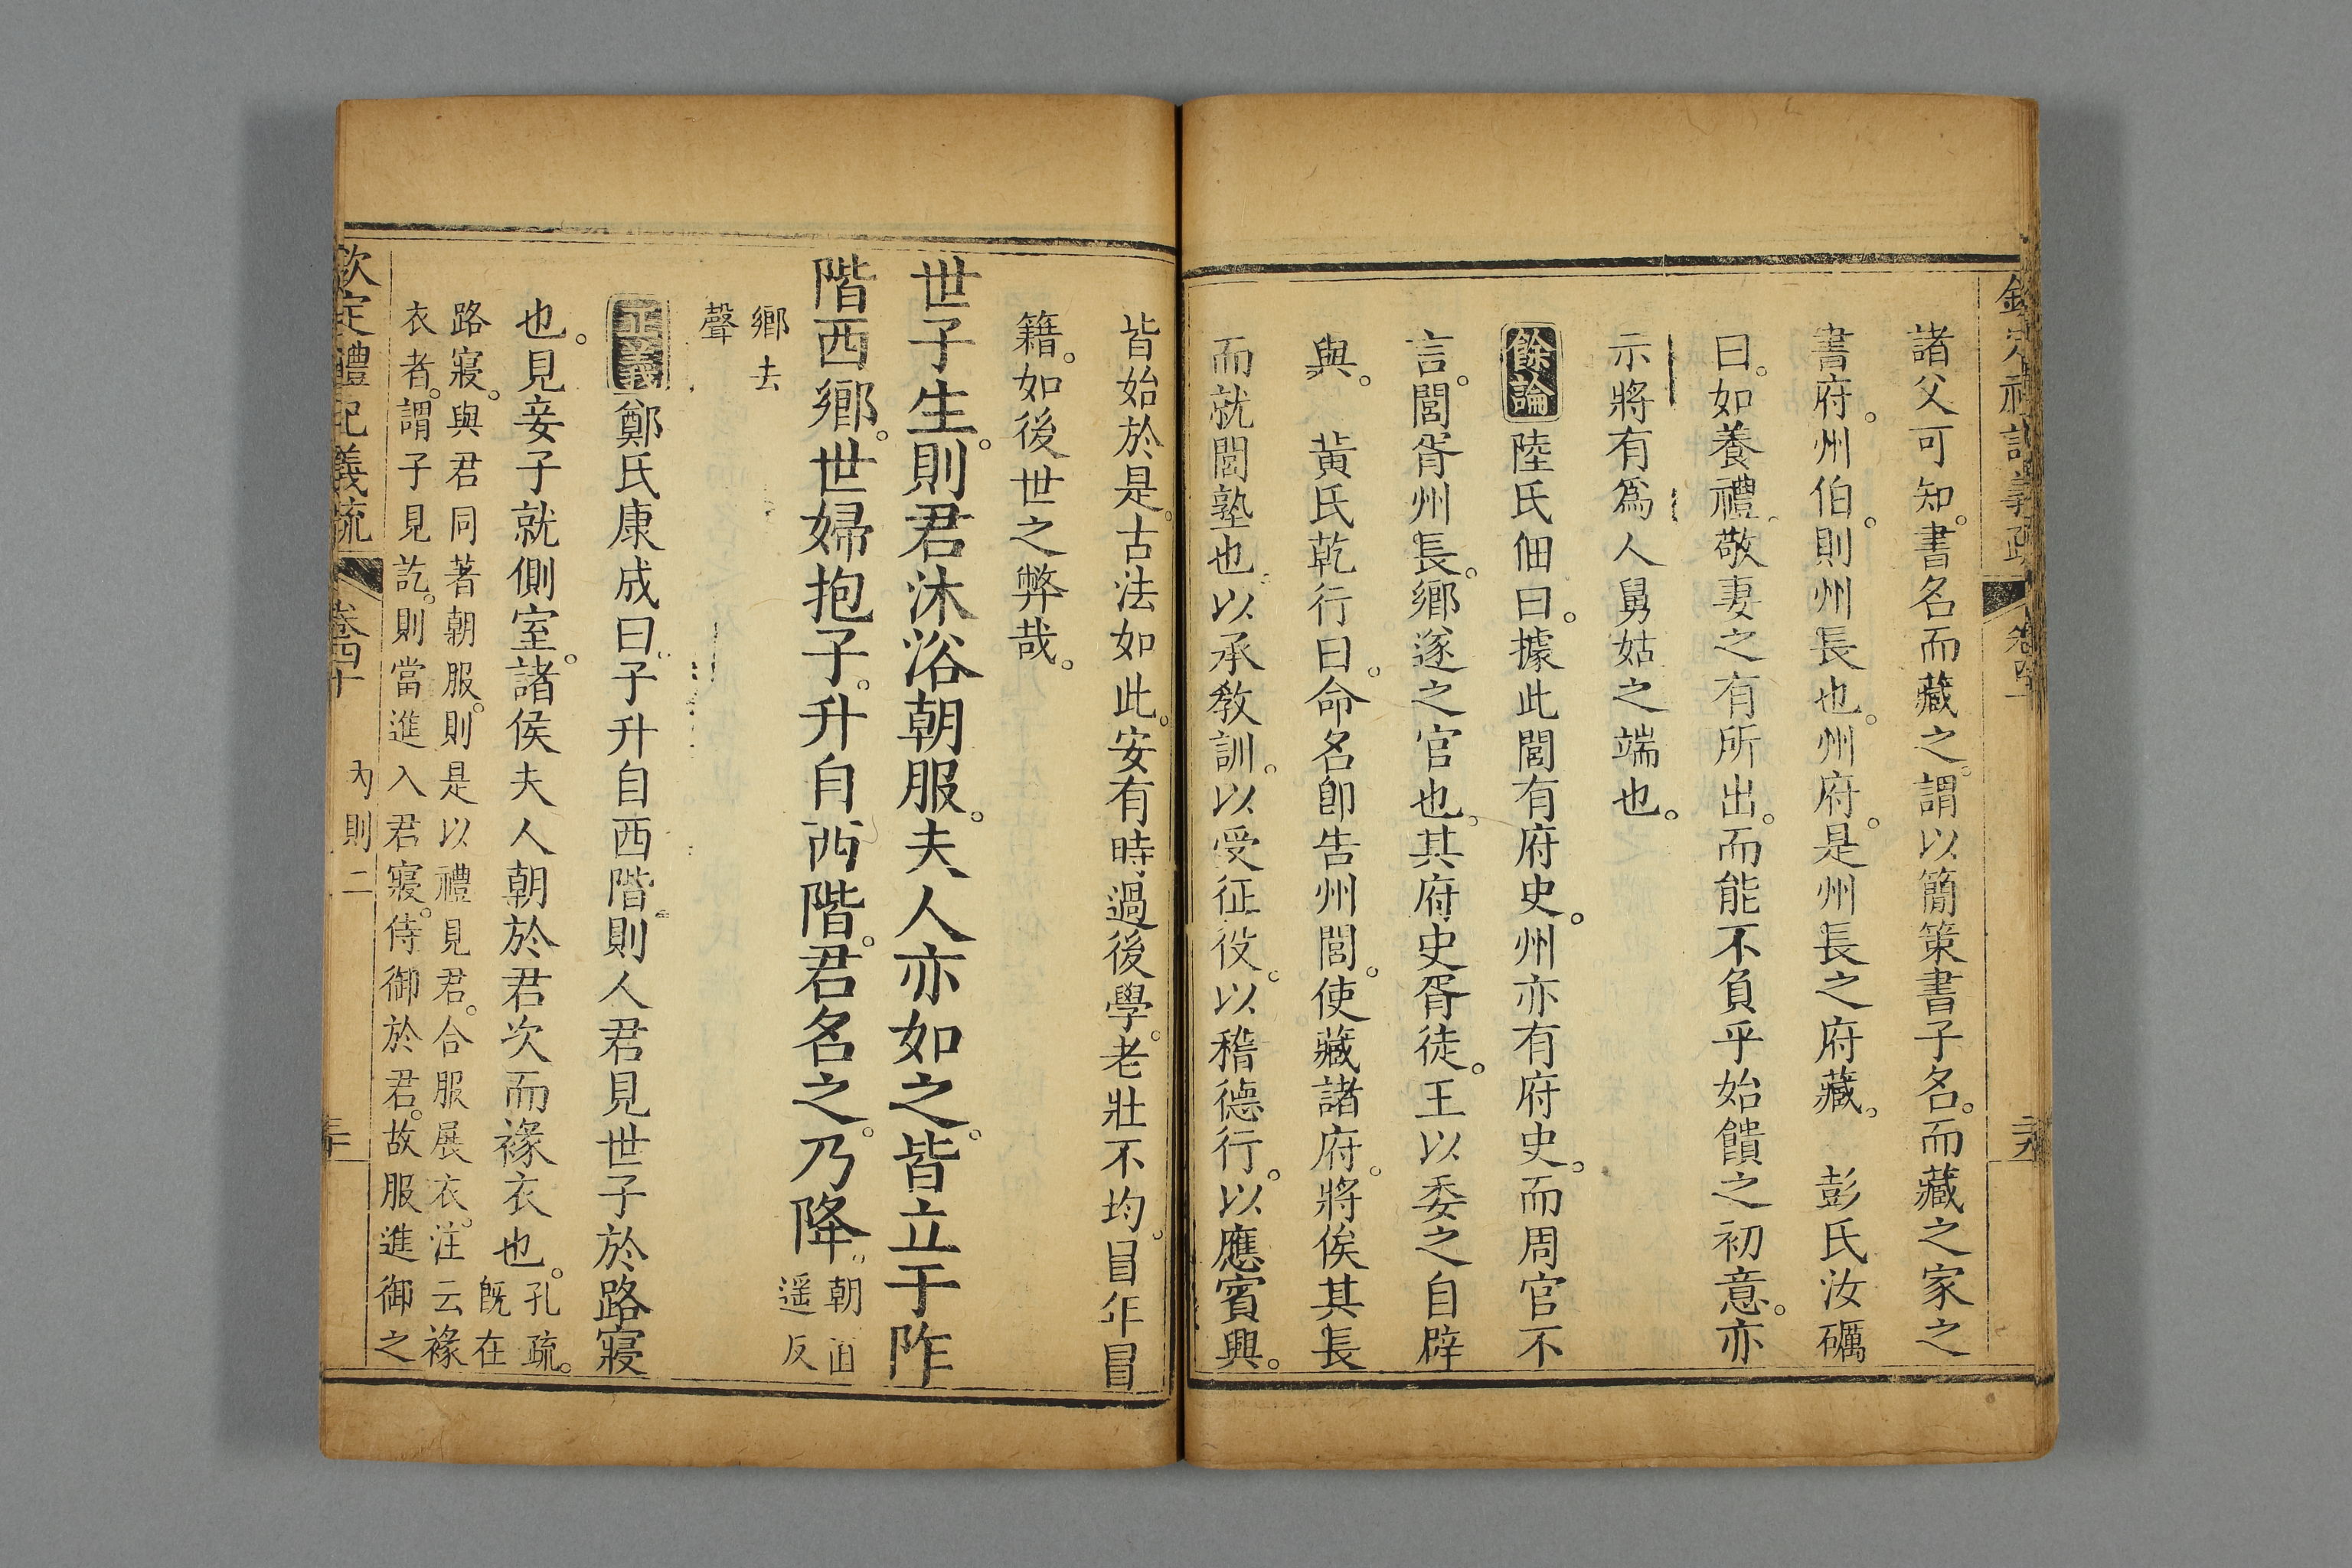 欽定禮記義疏 卷四十 三九
諸父可知。書名而藏之。謂以簡策書子名。而藏之家之
書府。州伯。則州長也。州府。是州長之府藏。 彭氏汝礪
曰。如養禮。敬妻之有所出。而能不負乎始饋之初意。亦
示將有爲人舅姑之端也。
餘論 陸氏佃曰。據此閭有府史。州亦有府史。而周官不
言。閭胥州長。鄉遂之官也。其府史胥徒。王以委之自辟
與。 黃氏乾行曰。命名卽告州閭。使藏諸府。將俟其長
而就閭塾也。以承敎訓。以受征役。以稽德行。以應賓興。
皆始於是。古法如此。安有時過後學。老壯不均。冒年冒
籍。如後世之弊哉。
世子生。則君沐浴朝服。夫人亦如之。皆立于阼
階西鄉。世婦抱子。升自西階。君名之。乃降。朝直遥反
鄉去聲
正義 鄭氏康成曰。子升自西階。則人君見世子於路寢
也。見妾子就側室。諸侯夫人朝於君。次而褖衣也。孔疏。既在
路寢。與君同著朝服。則是以禮見君。合服展衣。注云褖
衣者。謂子見訖。則當進入君寢。侍御於君。故服進御之
欽定禮記義疏 卷四十 內則二 三十